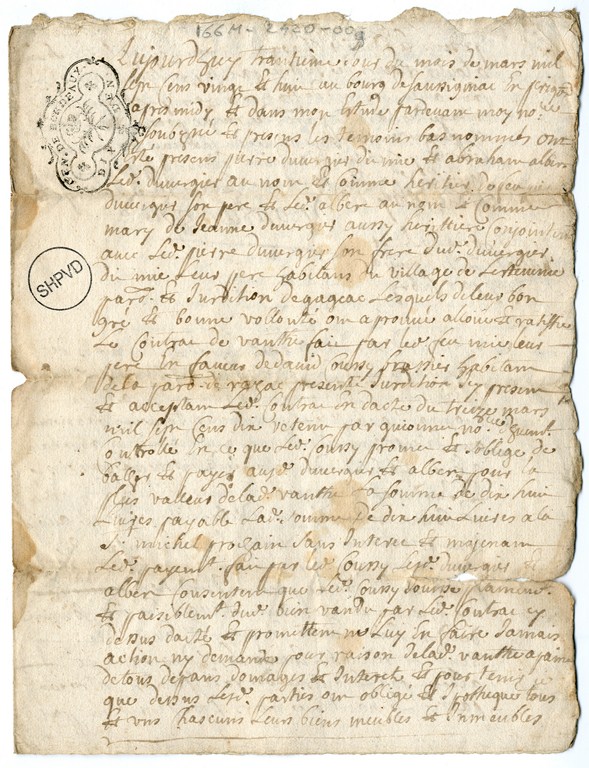 166M - 2420-009
GEN. DE BORDEAUX
SHPVD
Aujourdhuy trantieme jour du mois de mars mil
sept cens vingt et huit au bourg de saussignac en perigord
apres midy et dans mon estude pardevant moy no.re
soubzné et presens les temoins bas nommés ont
esté presens pierre duvergier du mie et abraham albert
led. duvergier au nom et comme heritier de feu
duvergier son pere et led. albere au nom et comme
mary de Jeanne duvergier aussy heritiere conjointem
avec led. pierre duvergier son frere dud. duvergier
du mie leur pere habitans du village de
parro. et Jurdition de gageac lesquels de leur bon
gré et bonne vollonté ont aprouvé alloué et ratiffié
le contrat de vanthe fait par led. feu mie leur
pere en faveur de david coussy habitant
de la parro. de razac present Jurdition icy present
et acceptant led. contrat en datte du treize mars
mil sept cens dix retenu par no.re duement
controllé en ce que led. coussy promet et s'oblige de
baller et payer ausd. duvergier et albert pour la
plus valleur de lad. vanthe la somme de dix huit
Livres payable lad. somme de dix huit Livres a la
St. michel prochain sans Interet et mojenant
led. payem. fait par led. coussy lesd. duvergier et
albert consentent que led. coussy jouisse plainem.
et paisiblem. dud. bien vandu par led. contrat cy
dessus datté et promettent ne luy en faire jamais
action ny demande pour raison de lad. vanthe a paine
de tous depans domages et Interet et pour tenir ce
que dessus lesd. parties ont obligé et Ipothequé tous
et uns chascuns leurs biens meubles et Inmeubles